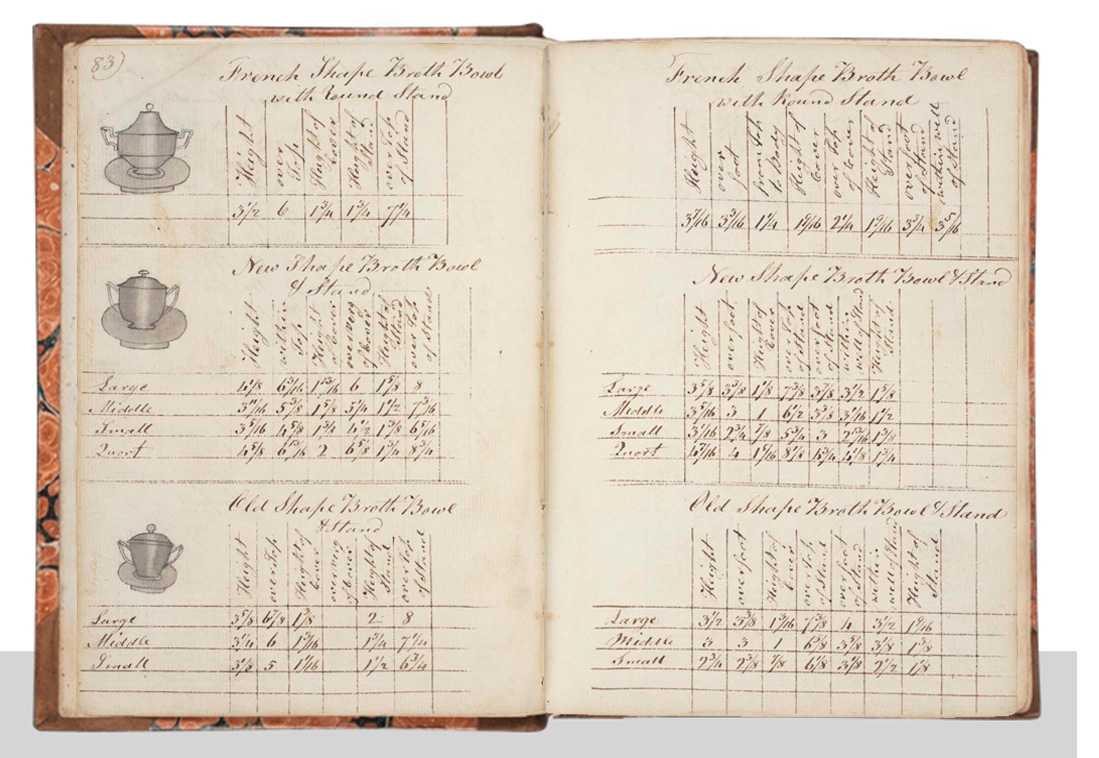 83)
French Shape Broth Bowl
with Round Stand
Height over Top Height of Cover Height of Stand over Top of Stand
3 1/2 6 1 3/4 1 3/4 7 1/4
New Shape Broth Bowl
& Stand
Height within Top Height of Cover over Height of Stand over Top of Stand
Large 4 1/8 6 3/16 1 13/16 6 1 5/8 8
Middle 3 11/16 5 3/8 1 5/8 5 1/4 1 1/2 7 3/16
Small 3 5/16 4 5/8 1 3/4 4 1/2 1 3/8 6 5/16
Quort 4 5/8 6 13/16 2 6 5/8 1 3/4 8 3/4
Old Shape Broth Bowl
& Stand
Height over Top Height of Cover over of Cover Height of Stand over Top of Stand
Large 3 5/8 6 7/8 1 3/8 2 8
Middle 3 1/4 6 1 3/16 1 3/4 7 1/4
Small 3 1/8 5 1 1/16 1 1/2 6 3/4
French Shape Broth Bowl
with Round Stand
Height over foot from Top to Body Height of Cover over Top of Cover Height of Stand over foot of Stand within well of Stand
3 7/16 3 3/16 1 1/4 1 9/16 2 1/4 1 9/16 3 3/4 3 5/16
New Shape Broth Bowl & Stand
Height over foot Height of Cover over Top of Stand over foot of Stand within well of Stand Height of Stand
Large 3 5/8 3 3/8 1 1/8 7 3/8 3 7/8 3 1/2 1 5/8
Middle 3 5/16 3 1 6 1/2 3 1/16 1 1/2
Small 3 1/16 2 3/4 7/8 5 3/4 3 2 13/16 1 3/8
Quort 4 7/16 4 1 5/16 8 1/8 4 1/8 1 3/4
Old Shape Broth Bowl & Stand
Height over foot Height of Cover over Top of Stand over foot of Stand within well of Stand Height of Stand
Large 3 1/2 3 3/8 1 3/16 7 3/8 4 3 1/2 1 9/16
Middle 3 3 1 3 3/8 3 1/8 1 3/8
Small 2 3/4 2 3/8 7/8 6 1/8 3 3/8 2 1/2 1 1/8